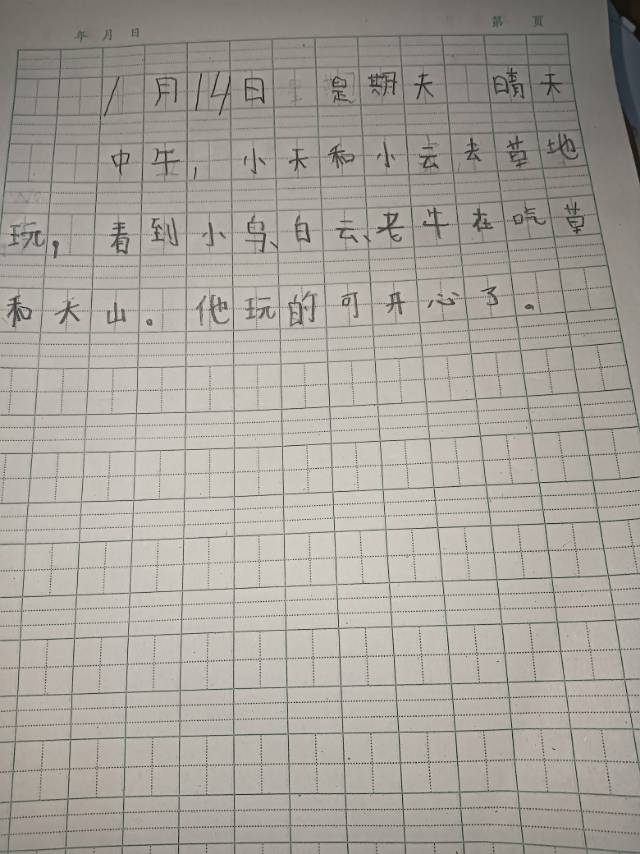 年 月 日 第 页
1月14日 星期天 晴天
中午,小天和小云去草地
玩,看到小鸟、白云、老牛在吃草
和大山。他玩的可开心了。